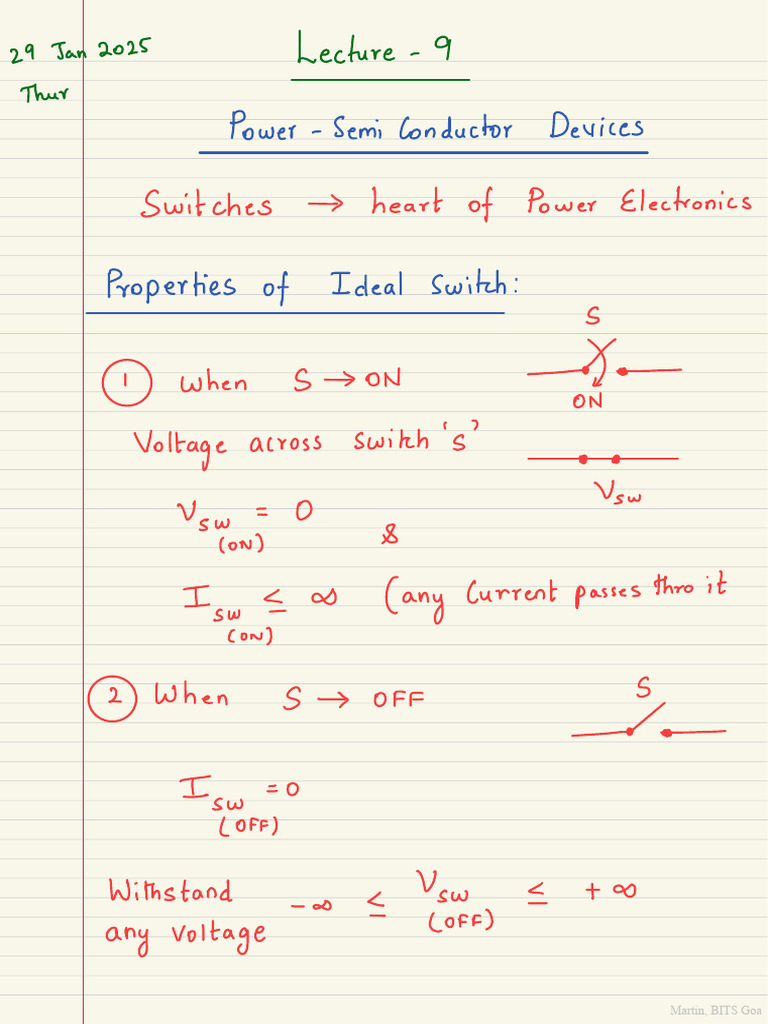 29 Jan 2025
Thur
Lecture - 9
Power - Semi Conductor Devices
Switches → heart of Power Electronics
Properties of Ideal Switch:
S
① When S → ON
ON
Voltage across switch 'S'
V_sw
V_sw (ON) = 0 &
I_sw (ON) ≤ ∞ (any Current passes thro it
② When S → OFF
S
I_sw (OFF) = 0
Withstand
any voltage
-∞ ≤ V_sw (OFF) ≤ +∞
Martin, BITS Goa